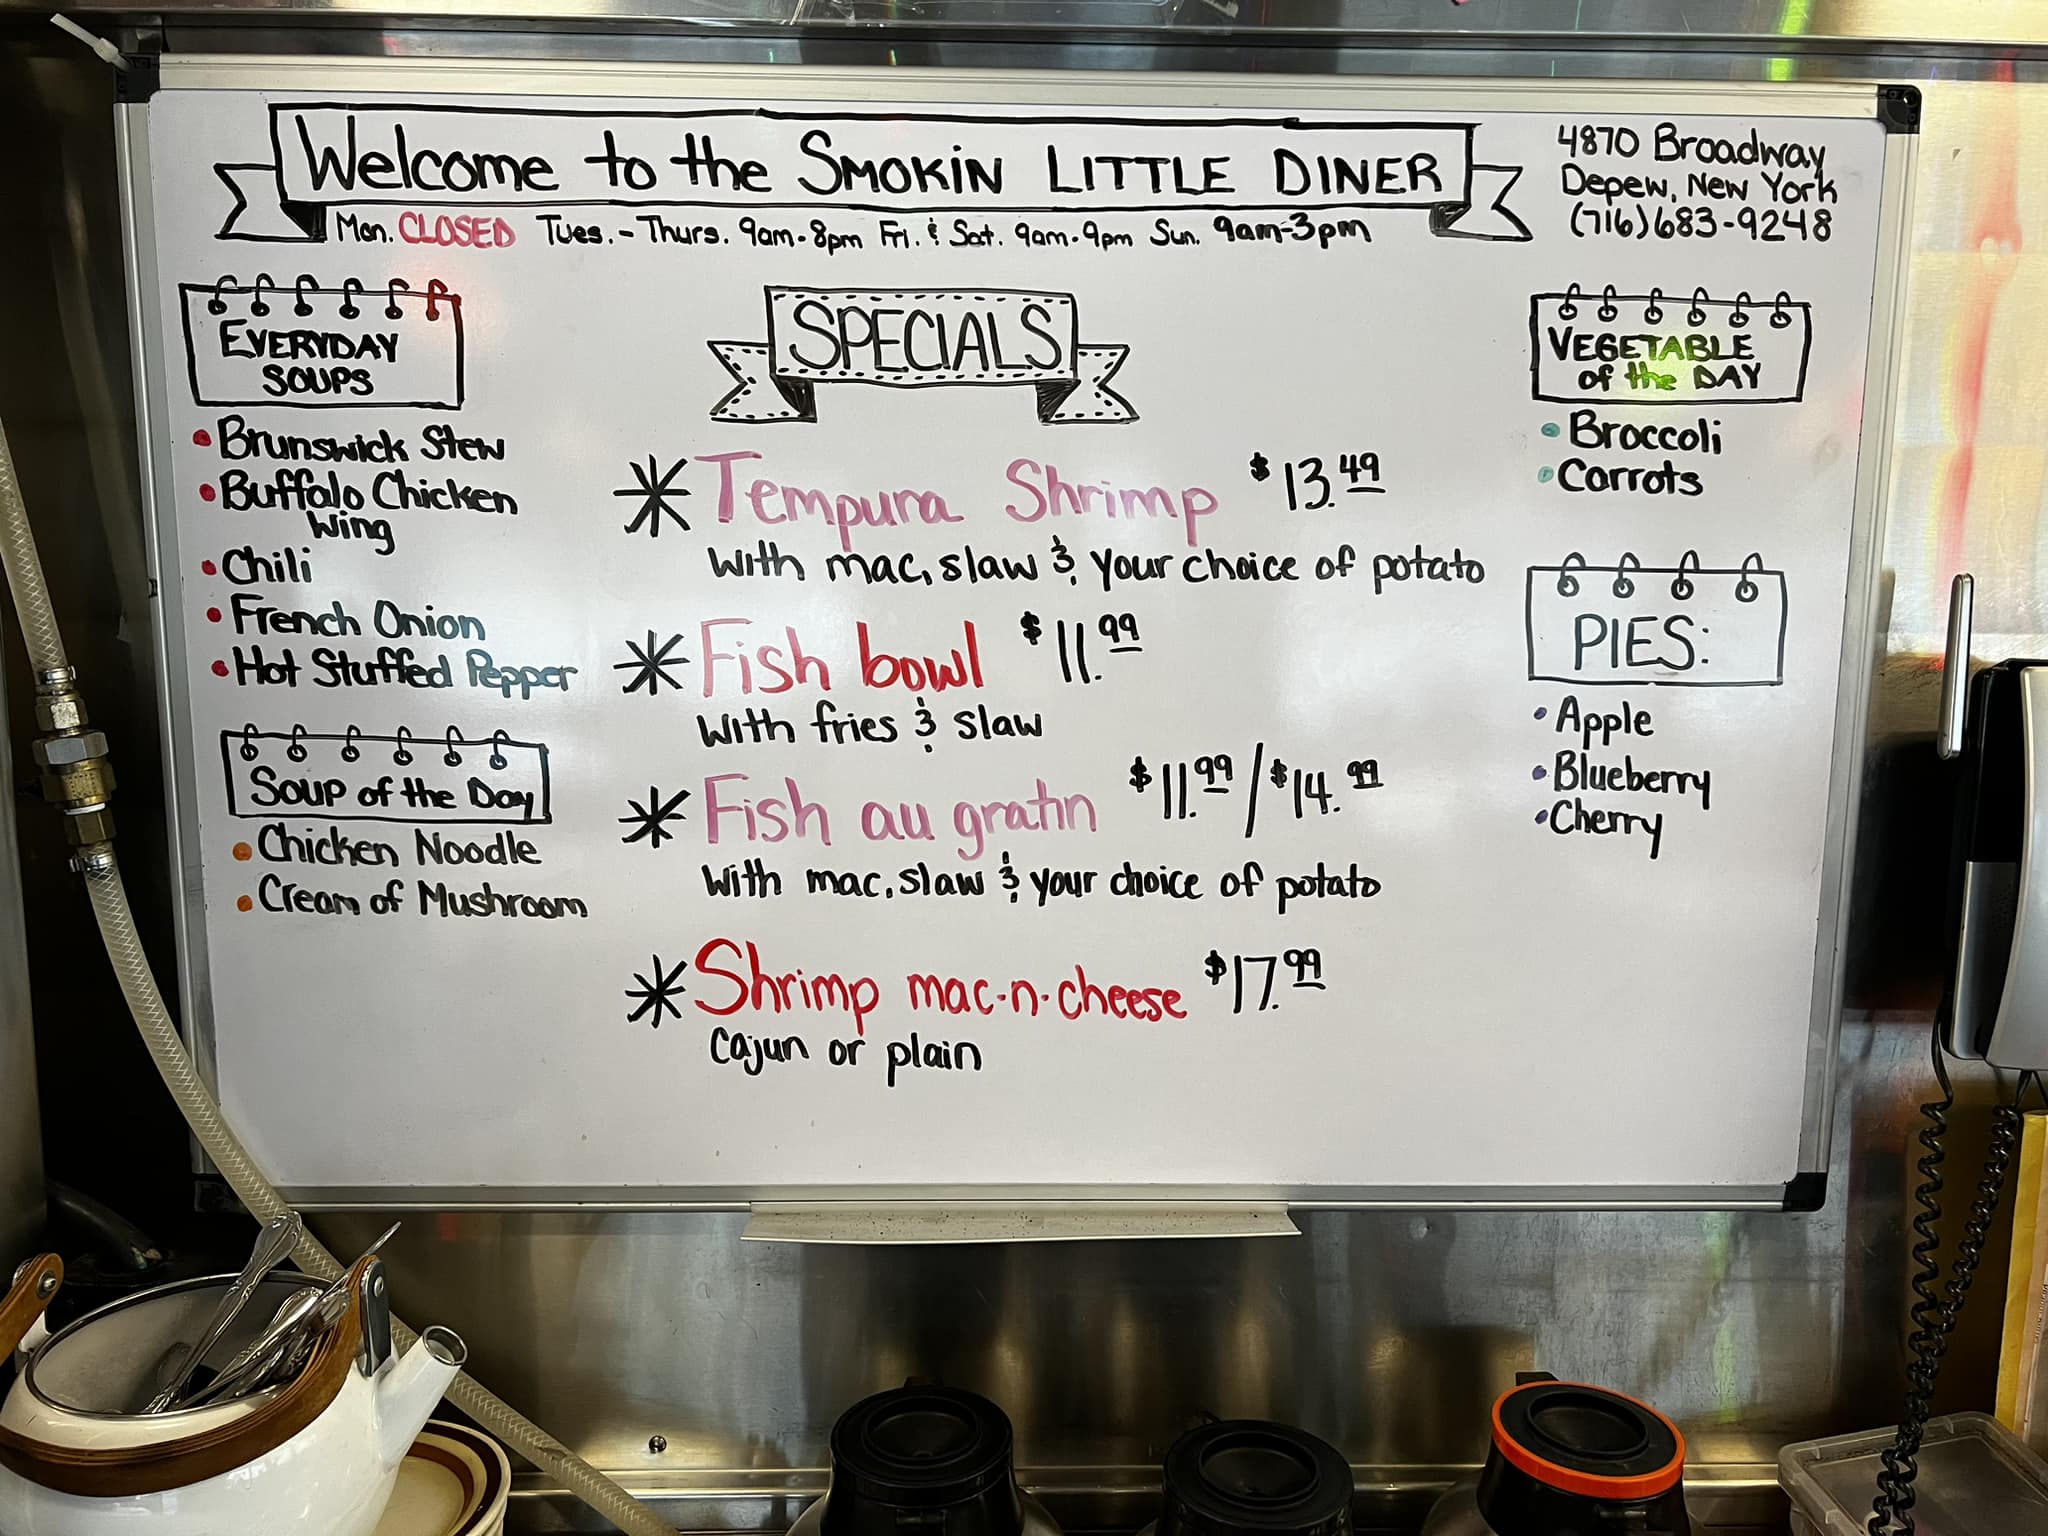 Welcome to the SMOKIN LITTLE DINER
Mon. CLOSED Tues. - Thurs. 9am-8pm Fri. & Sat. 9am-9pm Sun. 9am-3pm
4870 Broadway
Depew, New York
(716)683-9248
EVERYDAY
SOUPS
• Brunswick Stew
• Buffalo Chicken
Wing
• Chili
• French Onion
• Hot Stuffed Pepper
SOUP of the Day
• Chicken Noodle
• Cream of Mushroom
SPECIALS
* Tempura Shrimp $13.49
With mac, slaw & your choice of potato
* Fish bowl $11.99
With fries & slaw
* Fish au gratin $11.99/$14.99
With mac, slaw & your choice of potato
* Shrimp mac-n-cheese $17.99
Cajun or plain
VEGETABLE
of the DAY
• Broccoli
• Carrots
PIES:
• Apple
• Blueberry
• Cherry